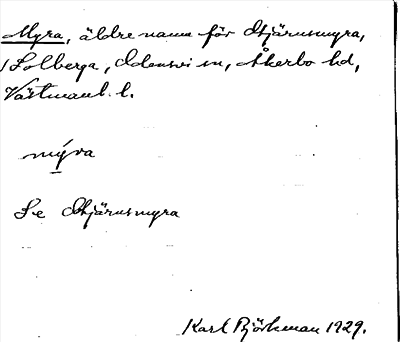 Myra, äldre namn för Stjärnsmyra,
/Solberga, Odensvi sn, Åkerbo hd,
Västmanl. l.
mýra
Se Stjärnsmyra
Karl Björkman 1929.